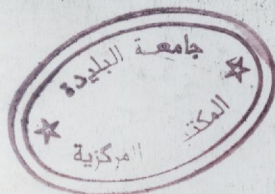 جامعة البليدة
المكتبـ
المركزية